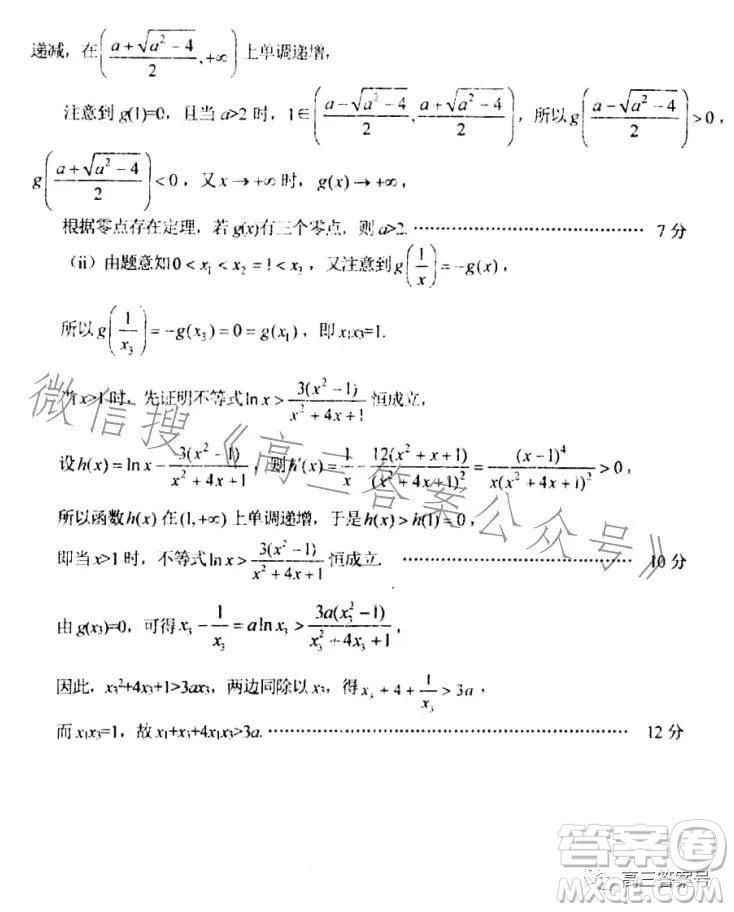 递减，在(\frac{a+\sqrt{a^2-4}}{2},+∞)上单调递增，
注意到 g(1)=0，且当 a>2 时，1∈(\frac{a-\sqrt{a^2-4}}{2},\frac{a+\sqrt{a^2-4}}{2})，所以g(\frac{a-\sqrt{a^2-4}}{2})>0，
g(\frac{a+\sqrt{a^2-4}}{2})<0，又 x→+∞ 时，g(x)→+∞，
根据零点存在定理，若 g(x)有三个零点，则 a>2. ………… 7 分
（ii）由题意知0<x₁<x₂=1<x₃，又注意到g(\frac{1}{x})=-g(x)，
所以g(\frac{1}{x₃})=-g(x₃)=0=g(x₁)，即 x₁x₃=1.
当 x>1 时，先证明不等式ln x>\frac{3(x²-1)}{x²+4x+1}恒成立，
设h(x)=ln x-\frac{3(x²-1)}{x²+4x+1}，则h′(x)=\frac{1}{x}-\frac{12(x²+x+1)}{(x²+4x+1)²}=\frac{(x-1)⁴}{x(x²+4x+1)²}>0，
所以函数h(x)在(1,+∞)上单调递增，于是h(x)>h(1)=0，
即当 x>1 时，不等式ln x>\frac{3(x²-1)}{x²+4x+1}恒成立. ………… 10 分
由 g(x₃)=0，可得x₃-\frac{1}{x₃}=a ln x₃>\frac{3a(x₃²-1)}{x₃²+4x₃+1}，
因此，x₃²+4x₃+1>3ax₃，两边同除以 x₃，得x₃+4+\frac{1}{x₃}>3a，
而 x₁x₃=1，故 x₁+x₃+4x₁x₃>3a. ………… 12 分
微信搜《高三答案公众号》
答案圈
MXQE.COM
高三答案号